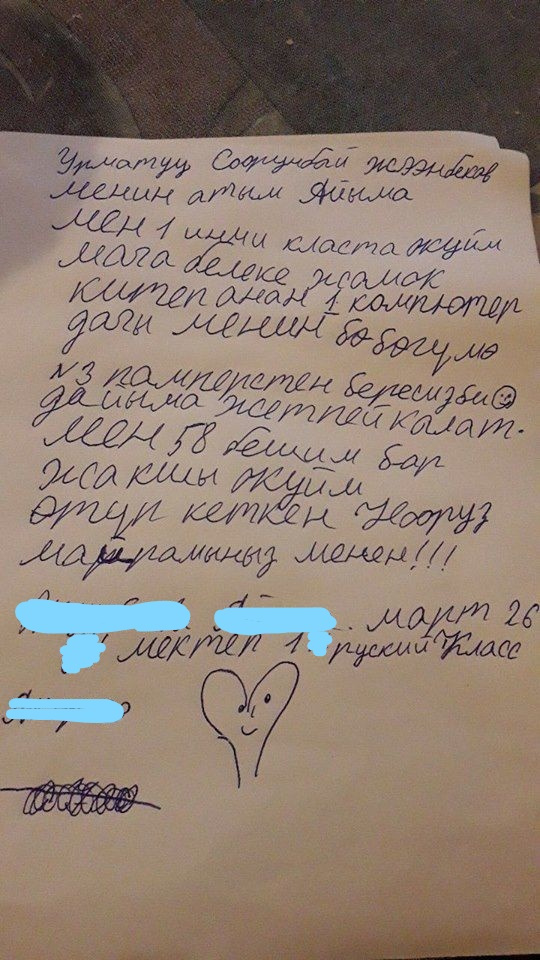 Урматуу Соорунбай Жээнбеков
менин атым Айыма
мен 1 инчи класта окуйм
мага белеке жамок
китеп анан 1 компютер
дагы менин бобогума
№3 памперстен бересизби
дайыма жетпей калат.
мен 58 бешим бар
жакшы окуйм
Өтуп кеткен Нооруз
майрамыныз менен!!!
март 26
мектеп 1 руский Класс